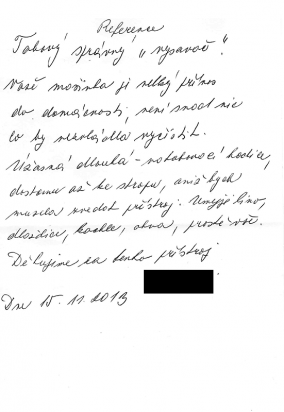 Reference
Takový správný „vysavač“.
Vaše mašinka je velký přínos
do domácnosti, není snad nic
co by nezvládla vyčistit.
Úžasná dlouhá - hadice,
dostanu až ke stropu, aniž bych
musela zvedat přístroj. Umyje lino,
dlaždice, koberce, okna, prostě vše.
Děkujeme za tenhle přístroj
Dne 15. 11. 2013